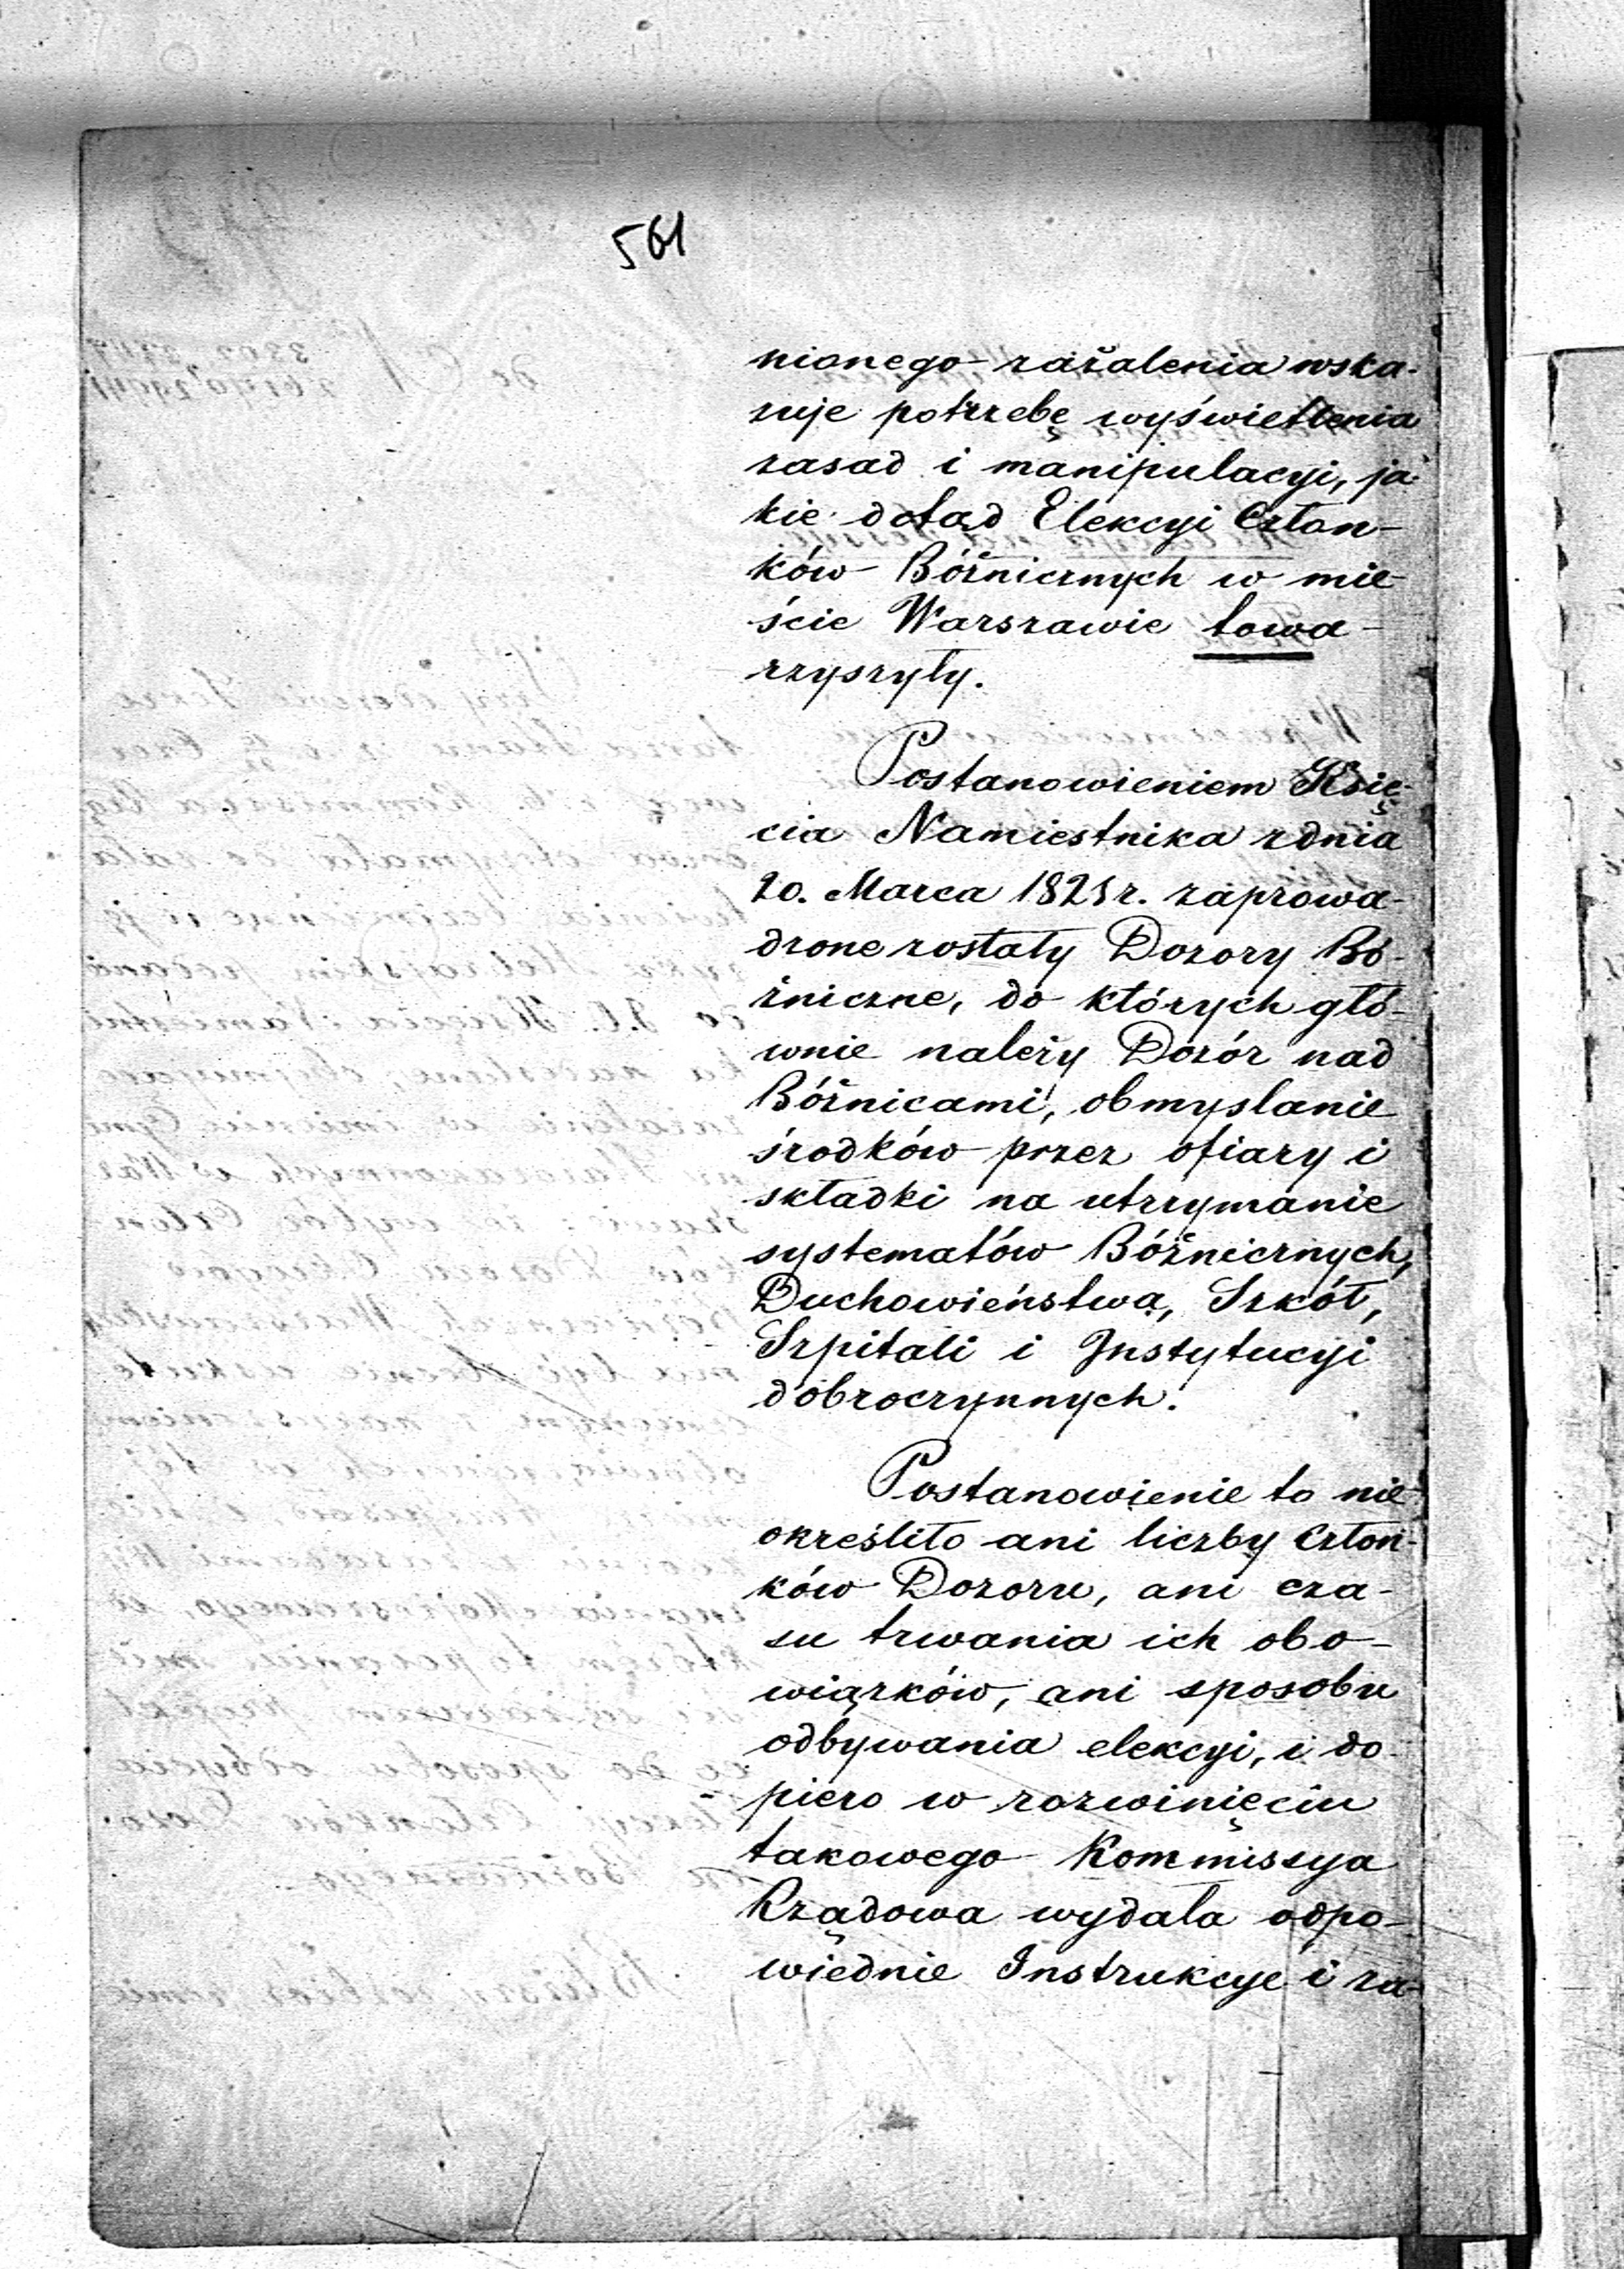 561
nionego zażalenia wska-
zuje potrzebę wyświetlenia
zasad i manipulacyi, ja-
kie dotąd Elekcyi Człon-
ków Bóżnicznych w mie-
ście Warszawie towa-
rzyszyły.
Postanowieniem Księ-
cia Namiestnika z dnia
20. Marca r. zaprowa-
dzone zostały Dozory Bó-
żniczne, do których głó-
wnie należy Dozór nad
Bóżnicami, obmyslanie
środków przez ofiary i
składki na utrzymanie
systematów Bóżnicznych,
Duchowieństwa, Szkół,
Szpitali i Instytucyi
dobroczynnych.
Postanowienie to nie
określiło ani liczby Człon-
ków Dozoru, ani cza-
su trwania ich obo-
wiązków, ani sposobu
odbywania elekcyi, i do-
piero w rozwinięciu
takowego Kommissya
Rządowa wydała odpo-
wiednie Instrukcye i za-